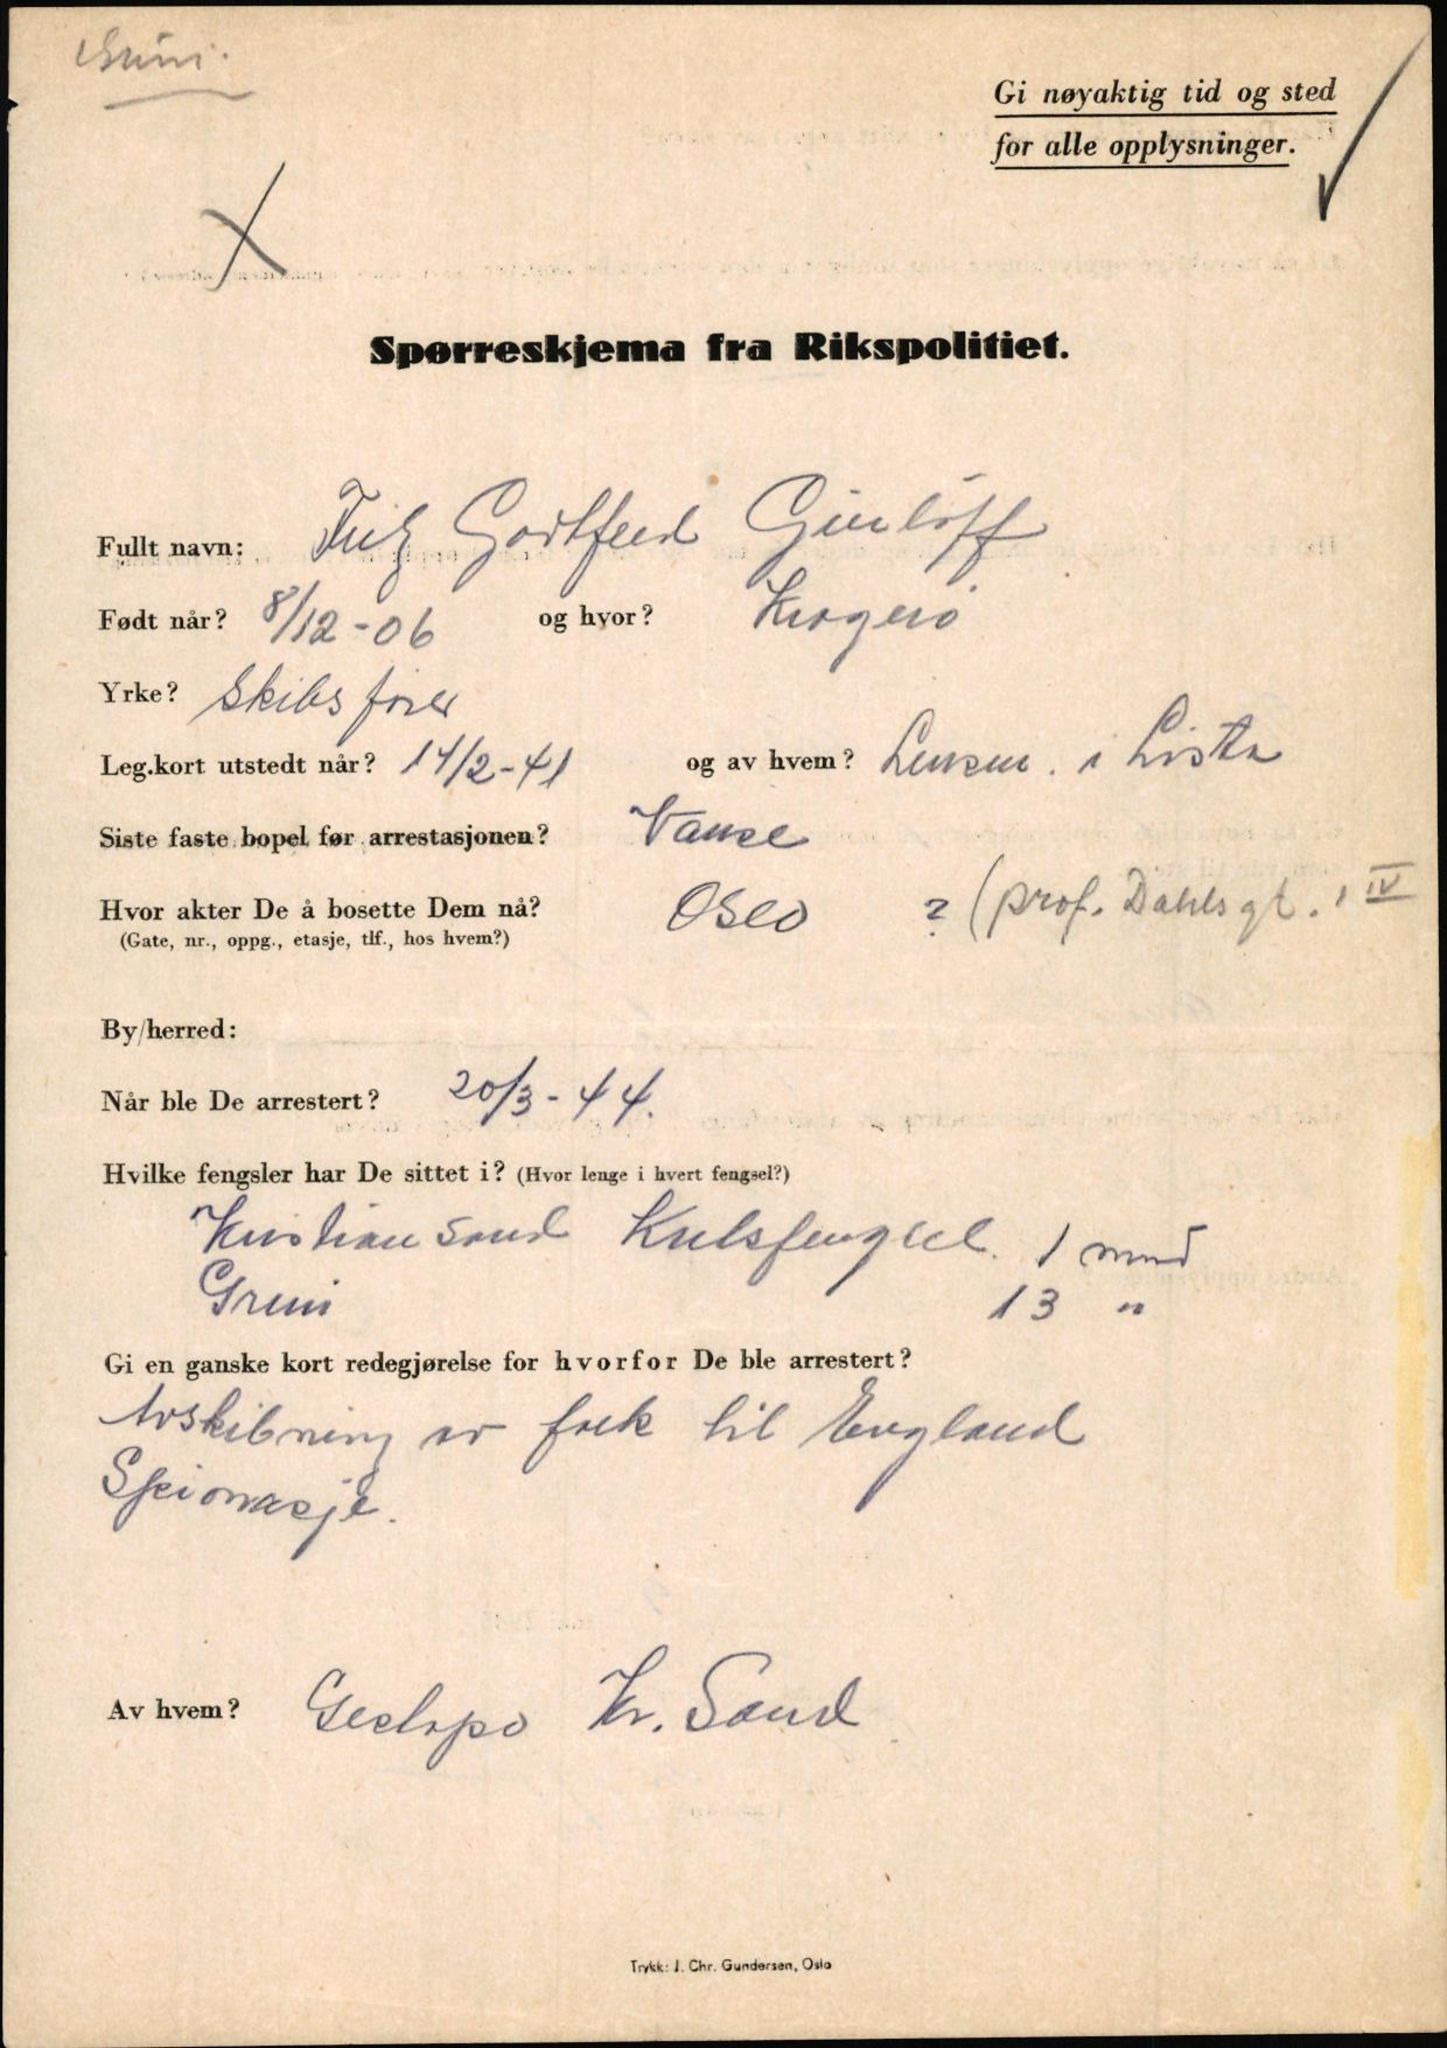 Grini.
Gi nøyaktig tid og sted
for alle opplysninger.
Spørreskjema fra Rikspolitiet.
Fullt navn: Fritz Gottfred Gierløff
Født når? 8/12-06 og hvor? Kragerø
Yrke? Skibsfører
Leg.kort utstedt når? 14/2-41 og av hvem? Lensm. i Lista
Siste faste bopel før arrestasjonen? Vanse
Hvor akter De å bosette Dem nå? Oslo ? (prof. Dahlsgt. 1 IV
(Gate, nr., oppg., etasje, tlf., hos hvem?)
By/herred:
Når ble De arrestert? 20/3-44.
Hvilke fengsler har De sittet i? (Hvor lenge i hvert fengsel?)
Kristiansand Kretsfengsel. 1 mnd
Grini 13 "
Gi en ganske kort redegjørelse for hvorfor De ble arrestert?
Avskibning av folk til England
Spionasje.
Av hvem? Gestapo Kr. Sand
Trykk: J. Chr. Gundersen, Oslo